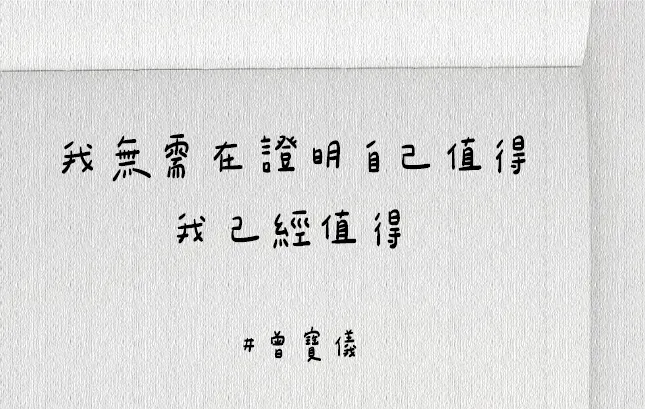 我無需在證明自己值得
我已經值得
#曾寶儀